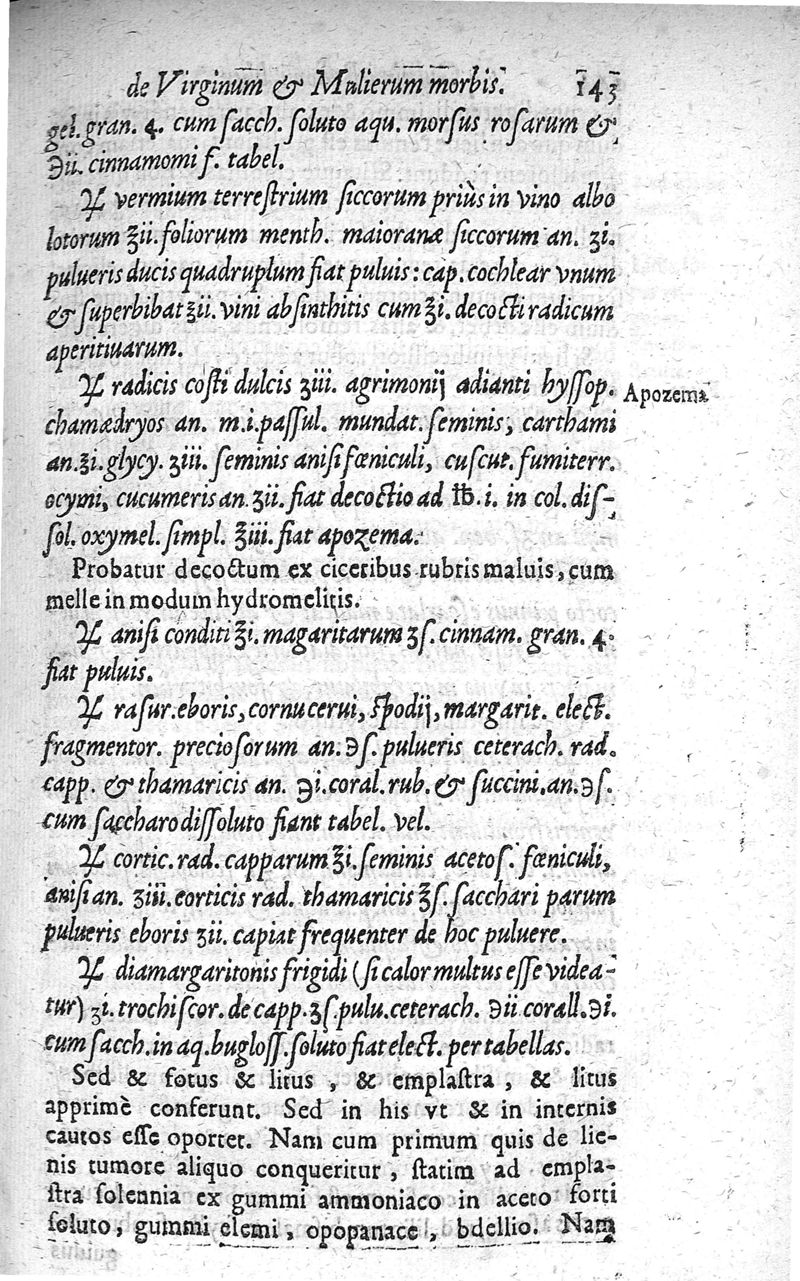 de Virginum & Mulierum morbis. 143
gel. gran. 4. cum sacch. soluto aqu. morsus rosarum &
℈ii. cinnamomi f. tabel.
℞ vermium terrestrium siccorum priùs in vino albo
lotorum ℥ii. foliorum menth. maioranæ siccorum an. ʒi.
pulueris ducis quadruplum fiat puluis: cap. cochlear vnum
& superbibat ℥ii. vini absinthitis cum ℥i. decocti radicum
aperitiuarum.
℞ radicis costi dulcis ʒiii. agrimonij adianti hyssop.
Apozema
chamædryos an. m.i. passul. mundat. seminis, carthami
an. ℥i. glycy. ʒiii. seminis anisi fœniculi, cuscut. fumiterr.
ocymi, cucumeris an. ʒii. fiat decoctio ad ℔. i. in col. dis-
sol. oxymel. simpl. ℥iii. fiat apozema.
Probatur decoctum ex ciceribus rubris maluis, cum
melle in modum hydromelitis.
℞ anisi conditi ℥i. magaritarum ʒſ. cinnam. gran. 4.
fiat puluis.
℞ rasur. eboris, cornu cerui, spodij, margarit. elect.
fragmentor. preciosorum an. ℈ſ. pulueris ceterach. rad.
capp. & thamaricis an. ℈i. coral. rub. & succini. an. ℈ſ.
cum saccharo dissoluto fiant tabel. vel.
℞ cortic. rad. capparum ℥i. seminis acetos. fœniculi,
anisi an. ʒiii. corticis rad. thamaricis ℥ſ. sacchari parum
pulueris eboris ʒii. capiat frequenter de hoc puluere.
℞ diamargaritonis frigidi (si calor multus esse videa-
tur) ʒi. trochiscor. de capp. ʒſ. pulu. ceterach. ℈ii corall. ℈i.
cum sacch. in aq. bugloss. soluto fiat elect. per tabellas.
Sed & fotus & litus, & emplastra, & litus
apprimè conferunt. Sed in his vt & in internis
cautos esse oportet. Nam cum primum quis de lie-
nis tumore aliquo conqueritur, statim ad empla-
stra solennia ex gummi ammoniaco in aceto forti
soluto, gummi elemi, opopanace, bdellio. Nam